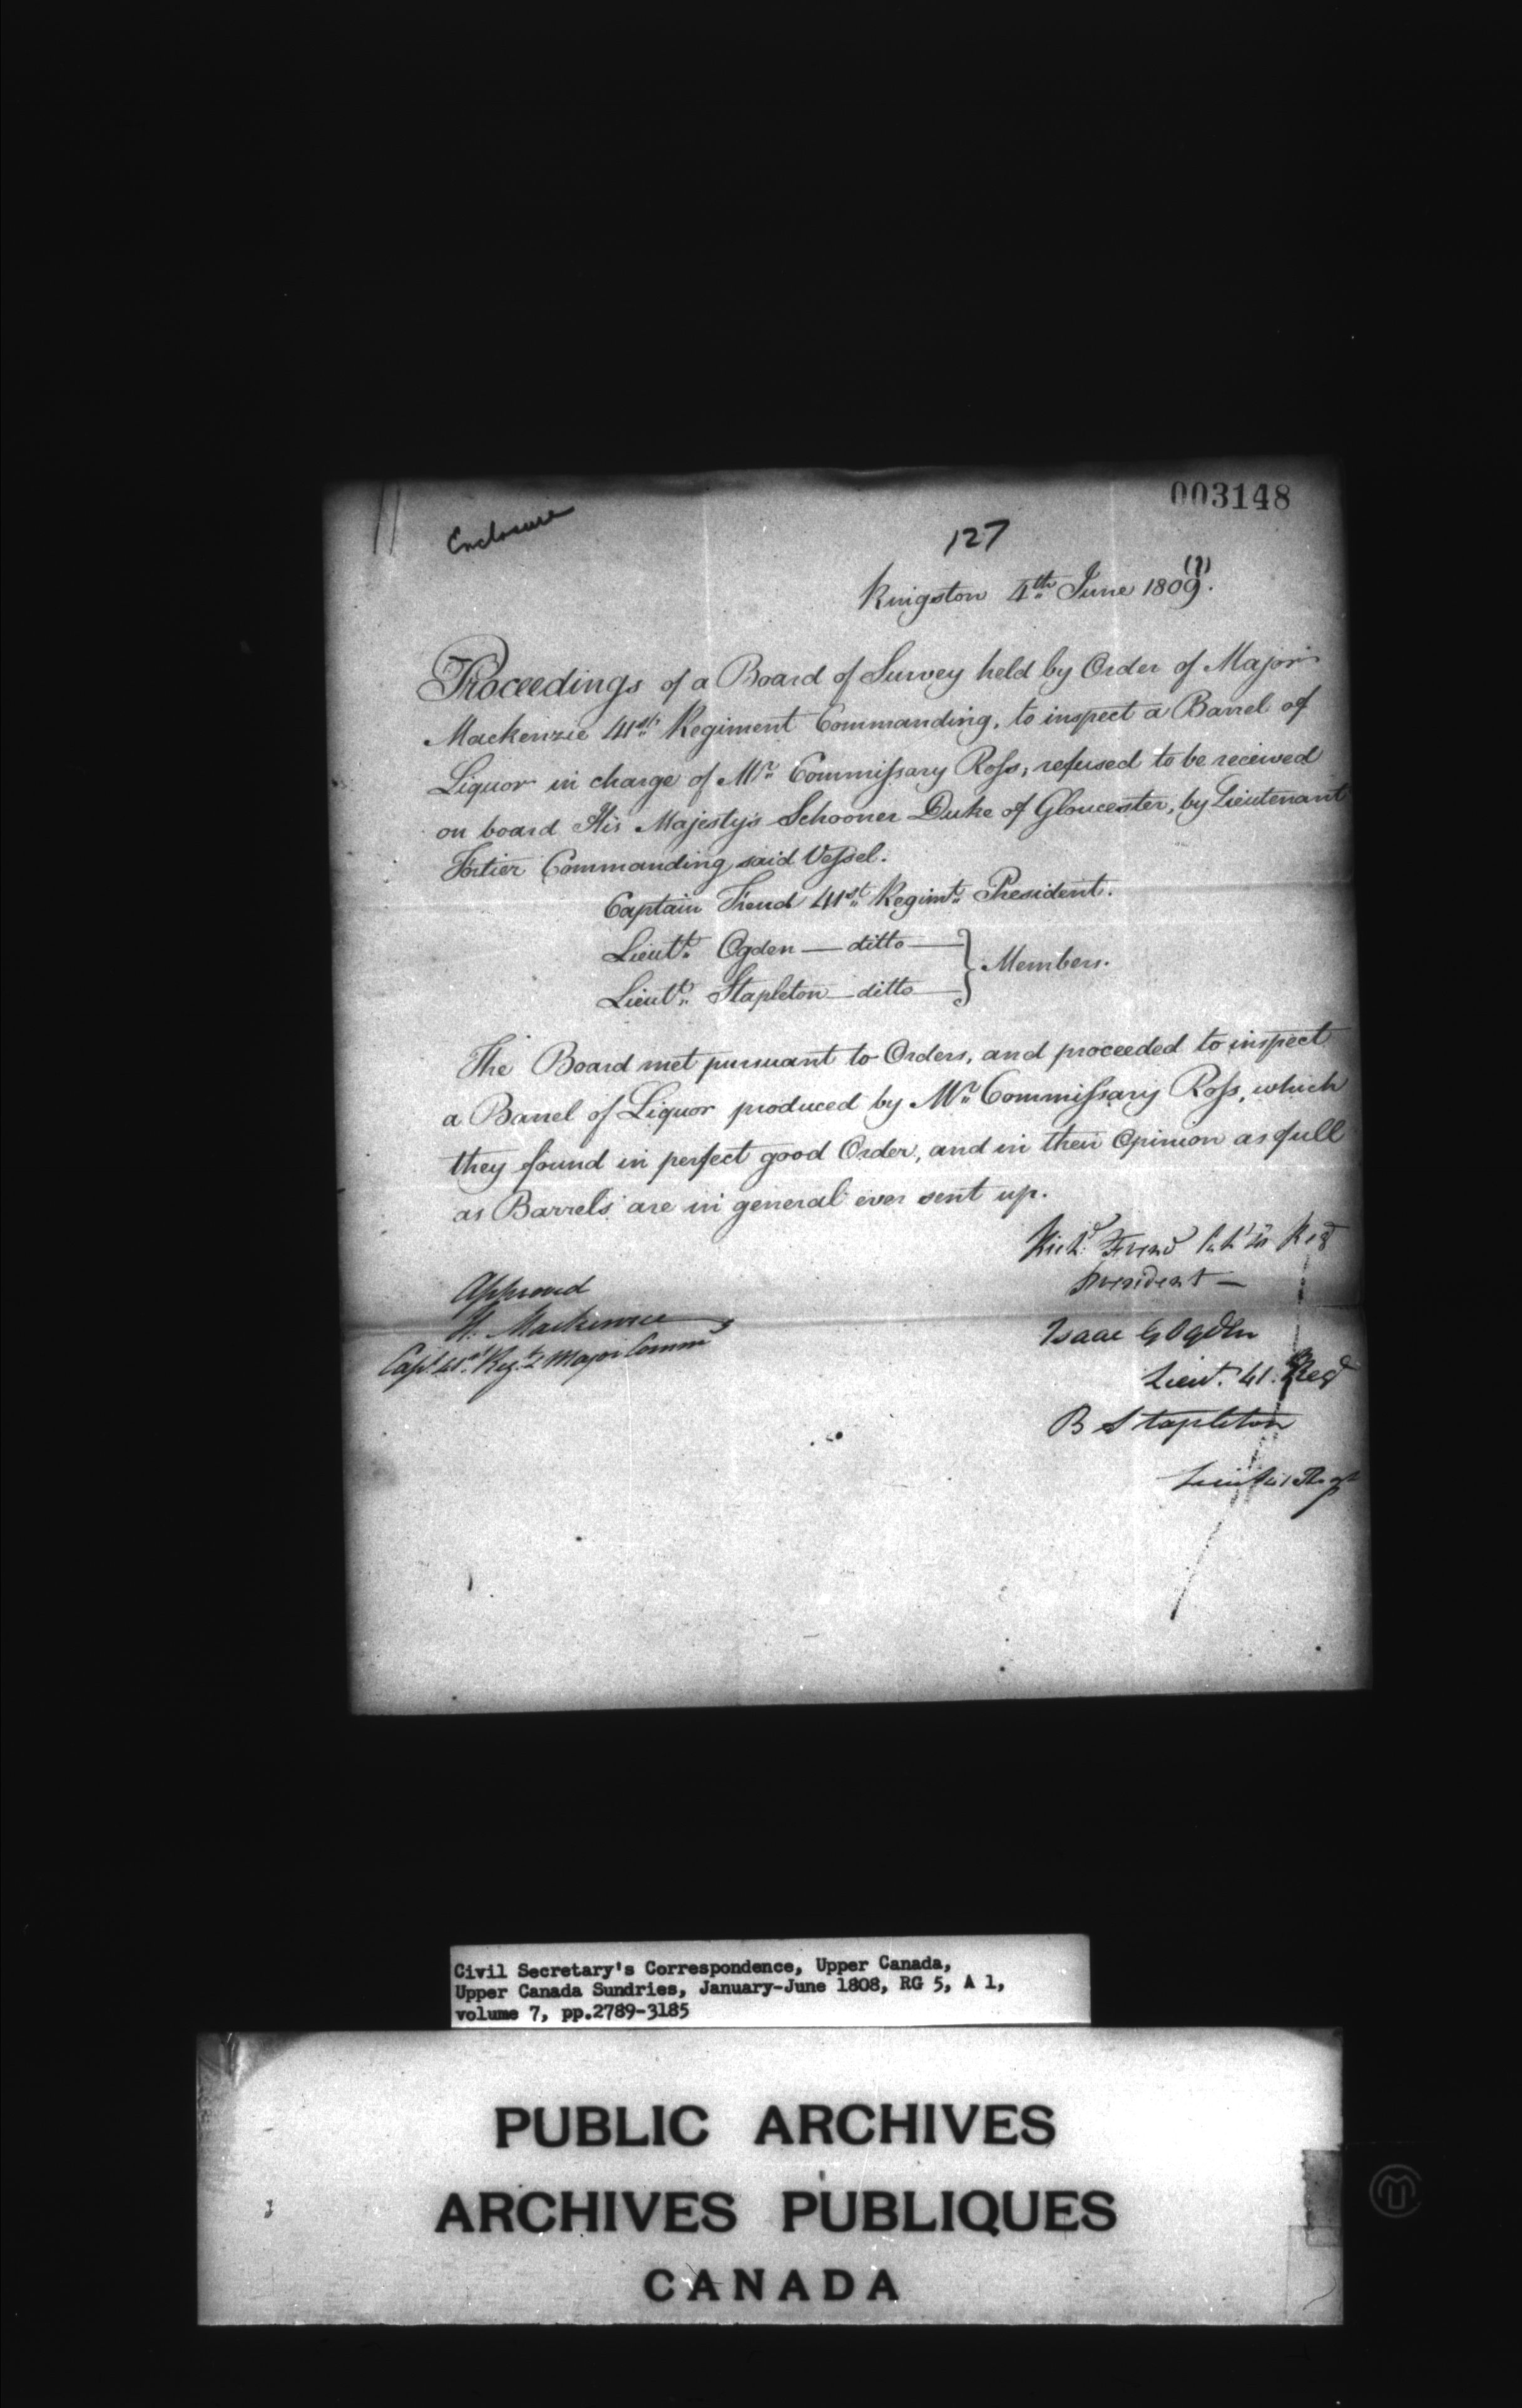 003148
Enclosure
127
(?)
Kingston 4th June 1809.
Proceedings of a Board of Survey held by Order of Major
Mackenzie 41st Regiment Commanding, to inspect a Barrel of
Liquor in charge of Mr. Commissary Ross, refused to be received
on board His Majesty's Schooner Duke of Gloucester, by Lieutenant
Fortier Commanding said Vessel.
Captain Frend 41st Regimt. President.
Lieutt. Ogden — ditto — } Members.
Lieutt. Stapleton — ditto —
The Board met pursuant to Orders, and proceeded to inspect
a Barrel of Liquor produced by Mr. Commissary Ross, which
they found in perfect good Order, and in their Opinion as full
as Barrels are in general ever sent up.
Richd. Frend Reg
President —
Approved
Mackenzie
Capt. 41st Regt. & Major Comm
Isaac G Ogden
Lieut. 41. Reg
B Stapleton
Lieut 41 Regt
Civil Secretary's Correspondence, Upper Canada,
Upper Canada Sundries, January-June 1808, RG 5, A 1,
volume 7, pp.2789-3185
PUBLIC ARCHIVES
ARCHIVES PUBLIQUES
CANADA